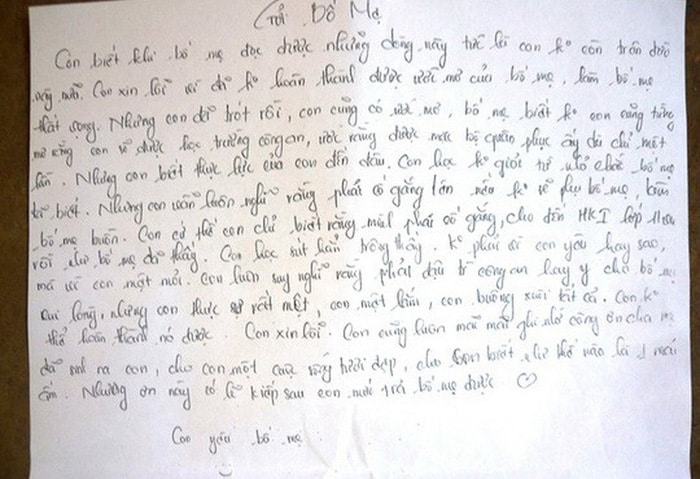 Gửi Bố Mẹ
Con biết khi bố mẹ đọc được những dòng này tức là con ko còn trên đời
này nữa. Con xin lỗi vì đã ko hoàn thành được ước mơ của bố mẹ, làm bố mẹ
thất vọng. Nhưng con đã trót rồi, con cũng có ước mơ, bố mẹ biết ko con cũng từng
mơ rằng con sẽ được học trường công an, ước rằng được mặc bộ quân phục ấy dù chỉ một
lần. Nhưng con biết thực lực của con đến đâu. Con học ko giỏi từ nhỏ chắc bố mẹ
đã biết. Nhưng con luôn luôn nghĩ rằng phải cố gắng lớn nếu ko sẽ phụ bố mẹ, làm
bố mẹ buồn. Con cứ thế con chỉ biết rằng mình phải cố gắng, cho đến HKI lớp
rồi như bố mẹ đã thấy. Con học sút hẳn trông thấy. Ko phải vì con yêu hay sao,
mà vì con mệt mỏi. Con luôn suy nghĩ rằng phải đậu trg công an hay y cho bố mẹ
vui lòng, nhưng con thực sự rất mệt, con mệt lắm, con buông xuôi tất cả. Con ko
thể hoàn thành nó được. Con xin lỗi. Con cũng luôn mãi mãi ghi nhớ công ơn cha mẹ
đã sinh ra con, cho con một cuộc sống tươi đẹp, cho con biết như thế nào là 1 mái
ấm. Nhưng ơn này có lẽ kiếp sau con mới trả bố mẹ được ♡
Con yêu bố mẹ